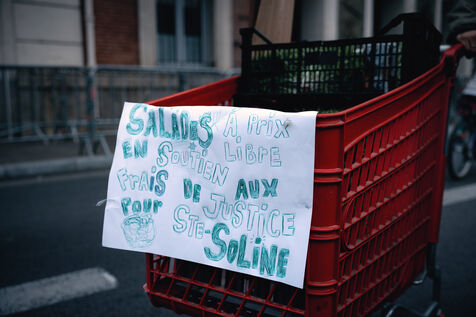 SALADES À PRIX
EN SOUTIEN LIBRE
FRAIS DE AUX
POUR JUSTICE
STE-SOLINE